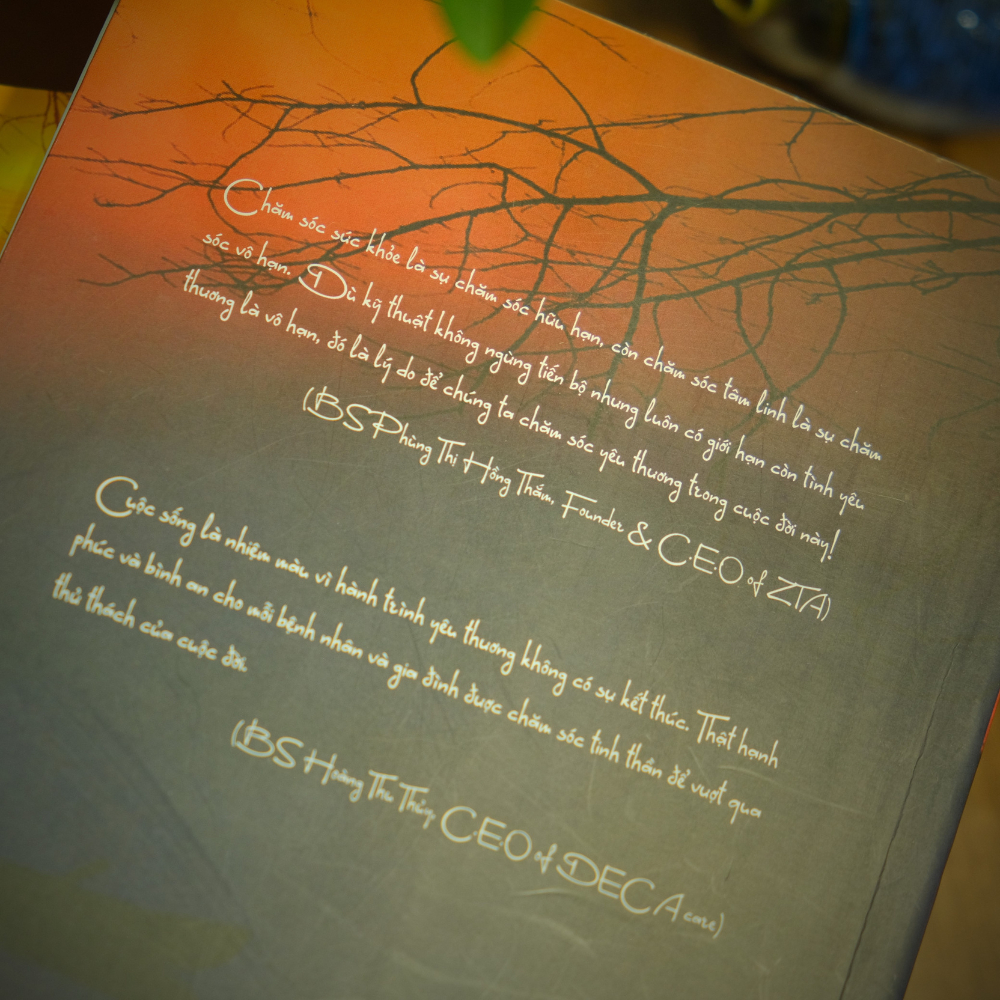 Chăm sóc sức khỏe là sự chăm sóc hữu hạn, còn chăm sóc tâm linh là sự chăm
sóc vô hạn. Dù kỹ thuật không ngừng tiến bộ nhưng luôn có giới hạn còn tình yêu
thương là vô hạn, đó là lý do để chúng ta chăm sóc yêu thương trong cuộc đời này!
(BS Phùng Thị Hồng Thắm, Founder & C.E.O of ZTA)
Cuộc sống là nhiệm màu vì hành trình yêu thương không có sự kết thúc. Thật hạnh
phúc và bình an cho mỗi bệnh nhân và gia đình được chăm sóc tinh thần để vượt qua
thử thách của cuộc đời.
(BS Hoàng Thu Thủy, C.E.O of DECA care)